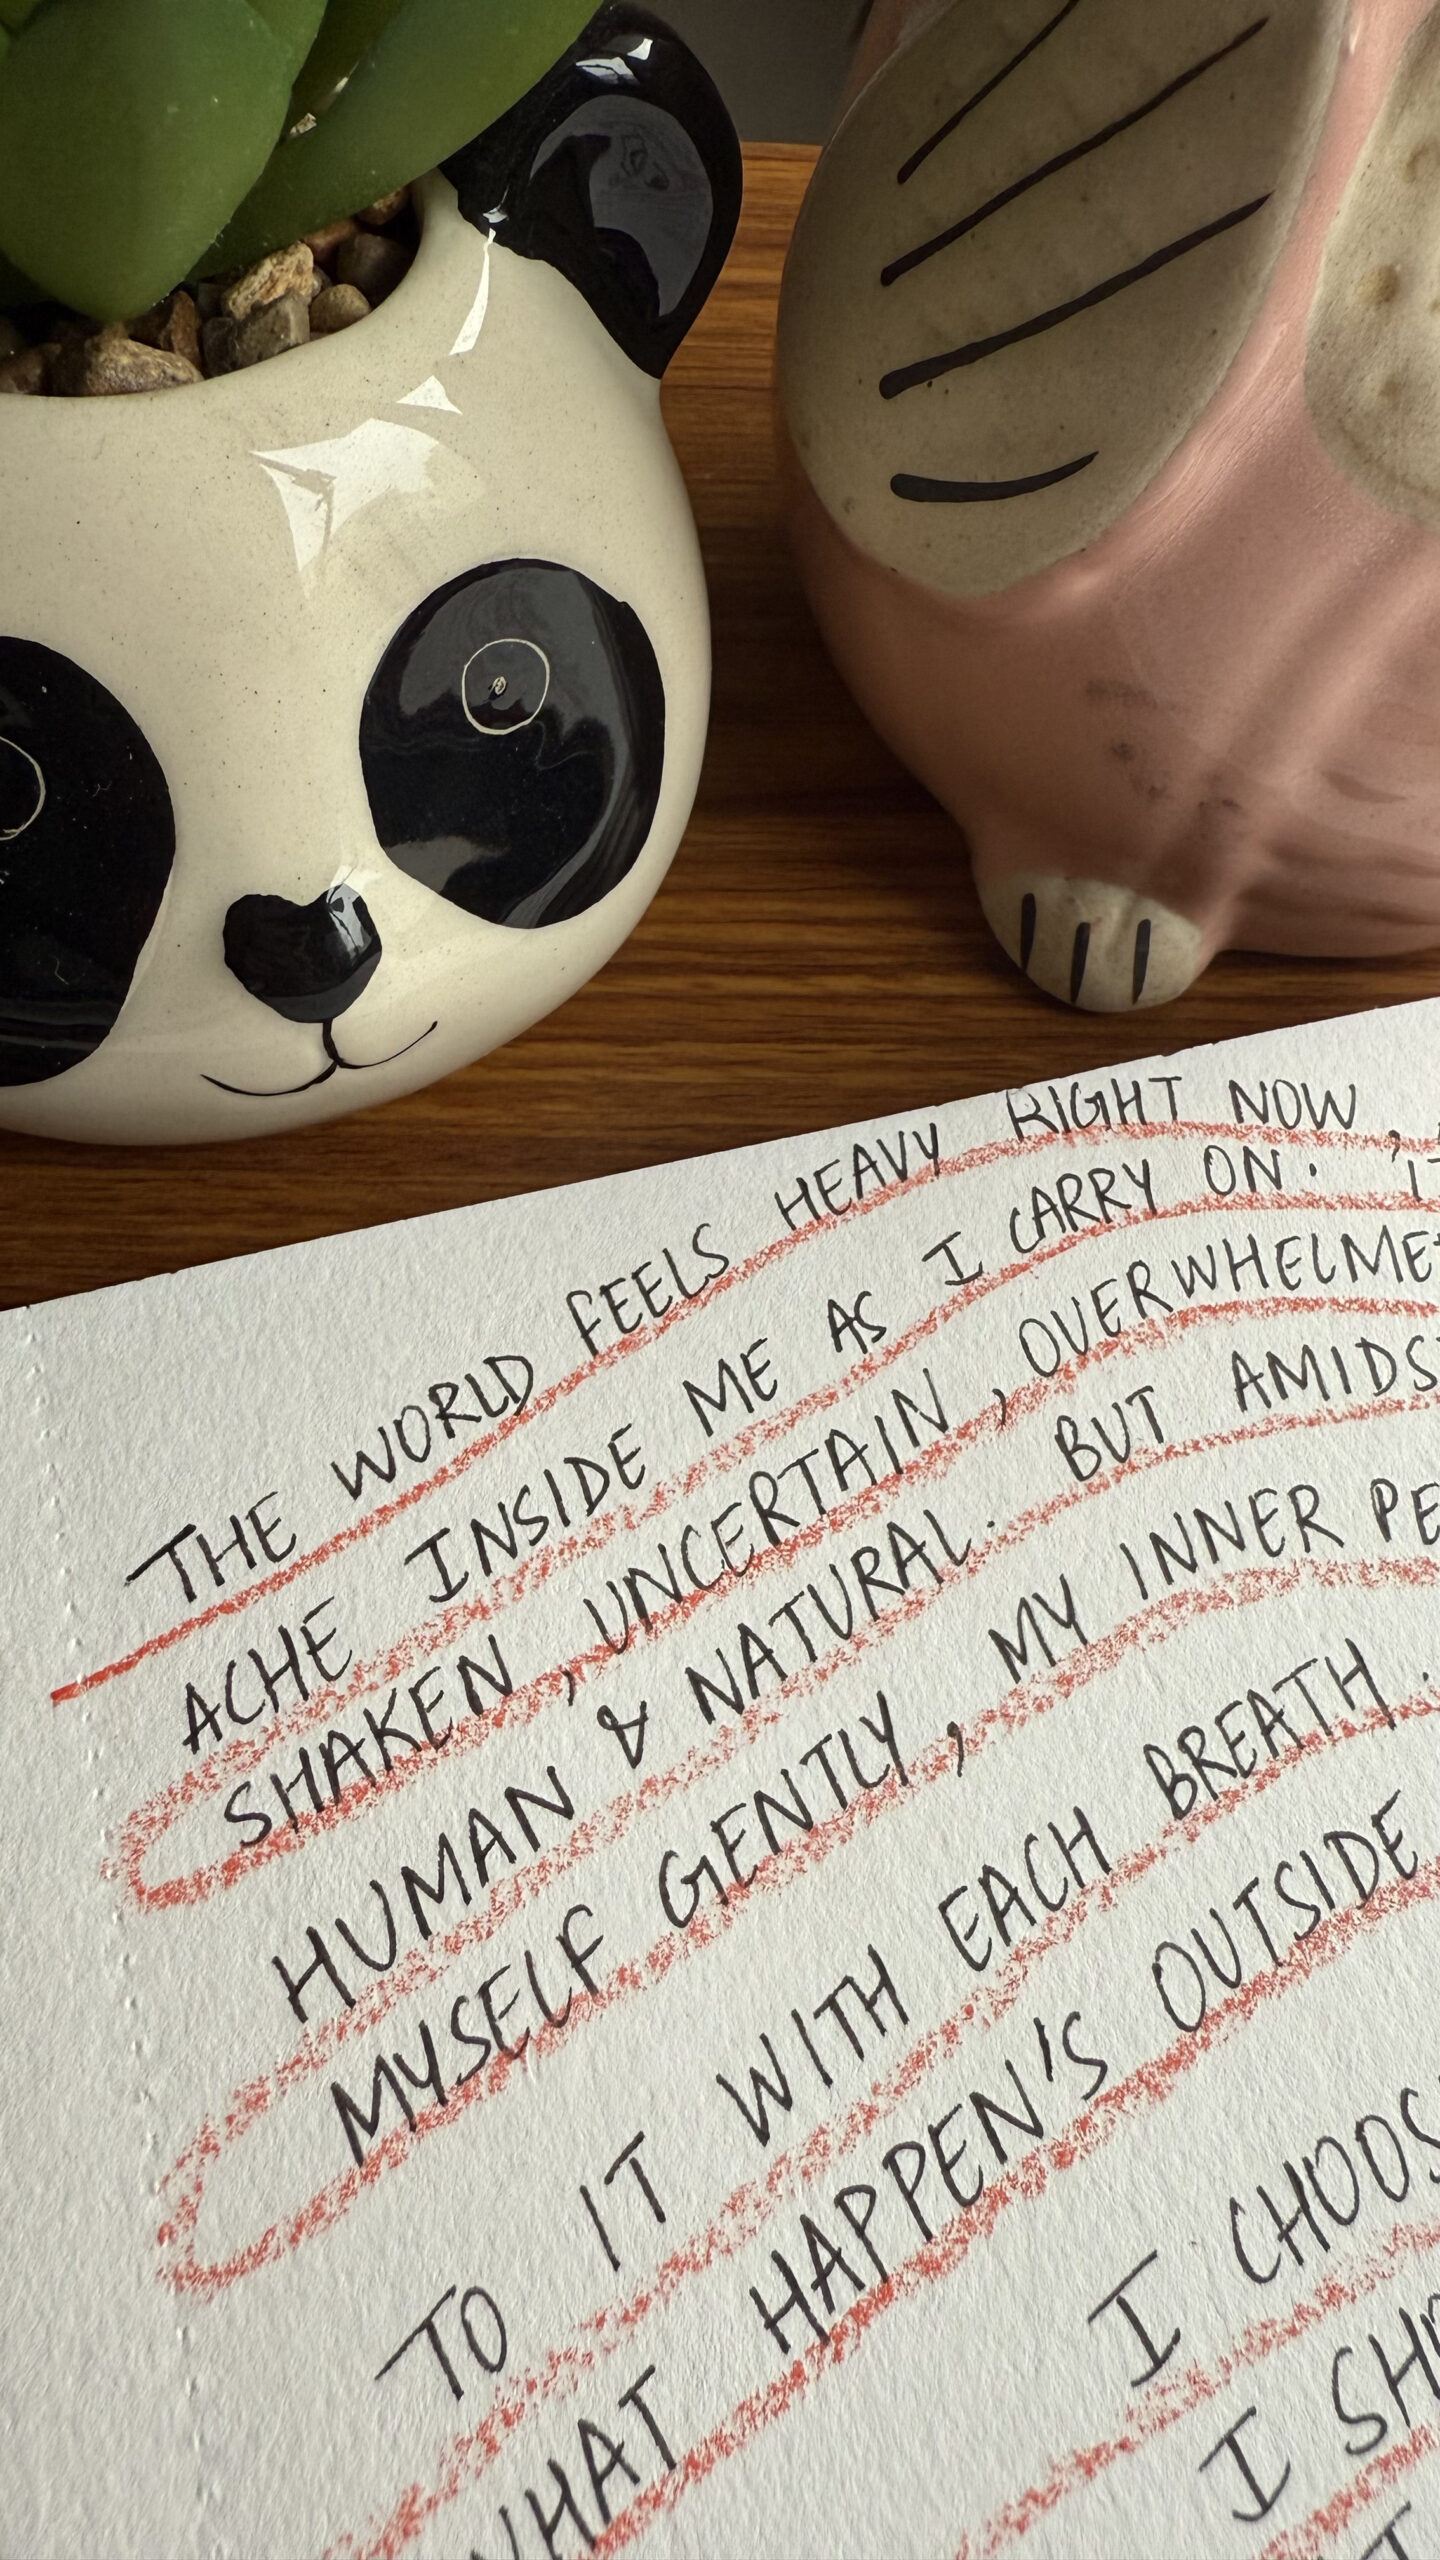 THE WORLD FEELS HEAVY RIGHT NOW,
ACHE INSIDE ME AS I CARRY ON.
SHAKEN, UNCERTAIN, OVERWHELME
HUMAN & NATURAL. BUT AMIDS
MYSELF GENTLY, MY INNER PE
TO IT WITH EACH BREATH.
WHAT HAPPEN'S OUTSIDE
I CHOOS
I SH